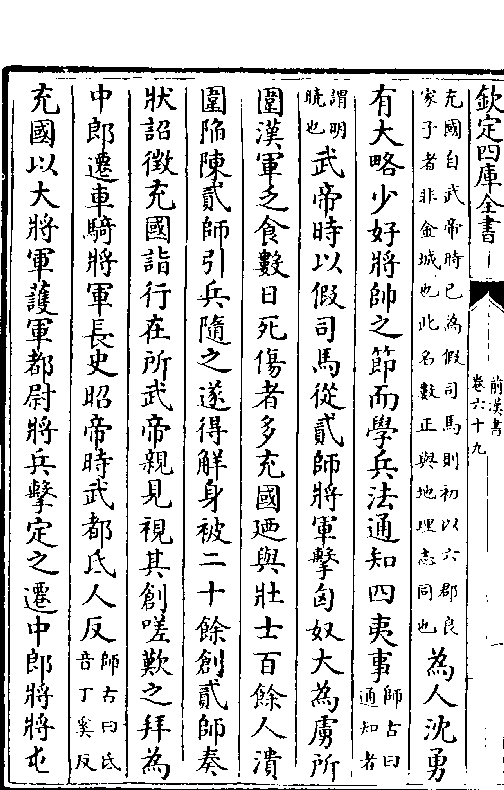 欽定四庫全書
前漢書
卷六十九
充國自武帝時已為假司馬則初以六郡良
家子者非金城也此名數正與地理志同也
為人沈勇
有大略少好將帥之節而學兵法通知四夷事
師古曰
通知者
謂明
曉也
武帝時以假司馬從貳師將軍擊匈奴大為虜所
圍漢軍乏食數日死傷者多充國廼與壯士百餘人潰
圍陷陳貳師引兵隨之遂得解身被二十餘創貳師奏
狀詔徵充國詣行在所武帝親見視其創嗟歎之拜為
中郎遷車騎將軍長史昭帝時武都氐人反
師古曰氐
音丁奚反
充國以大將軍護軍都尉將兵擊定之遷中郎將將屯